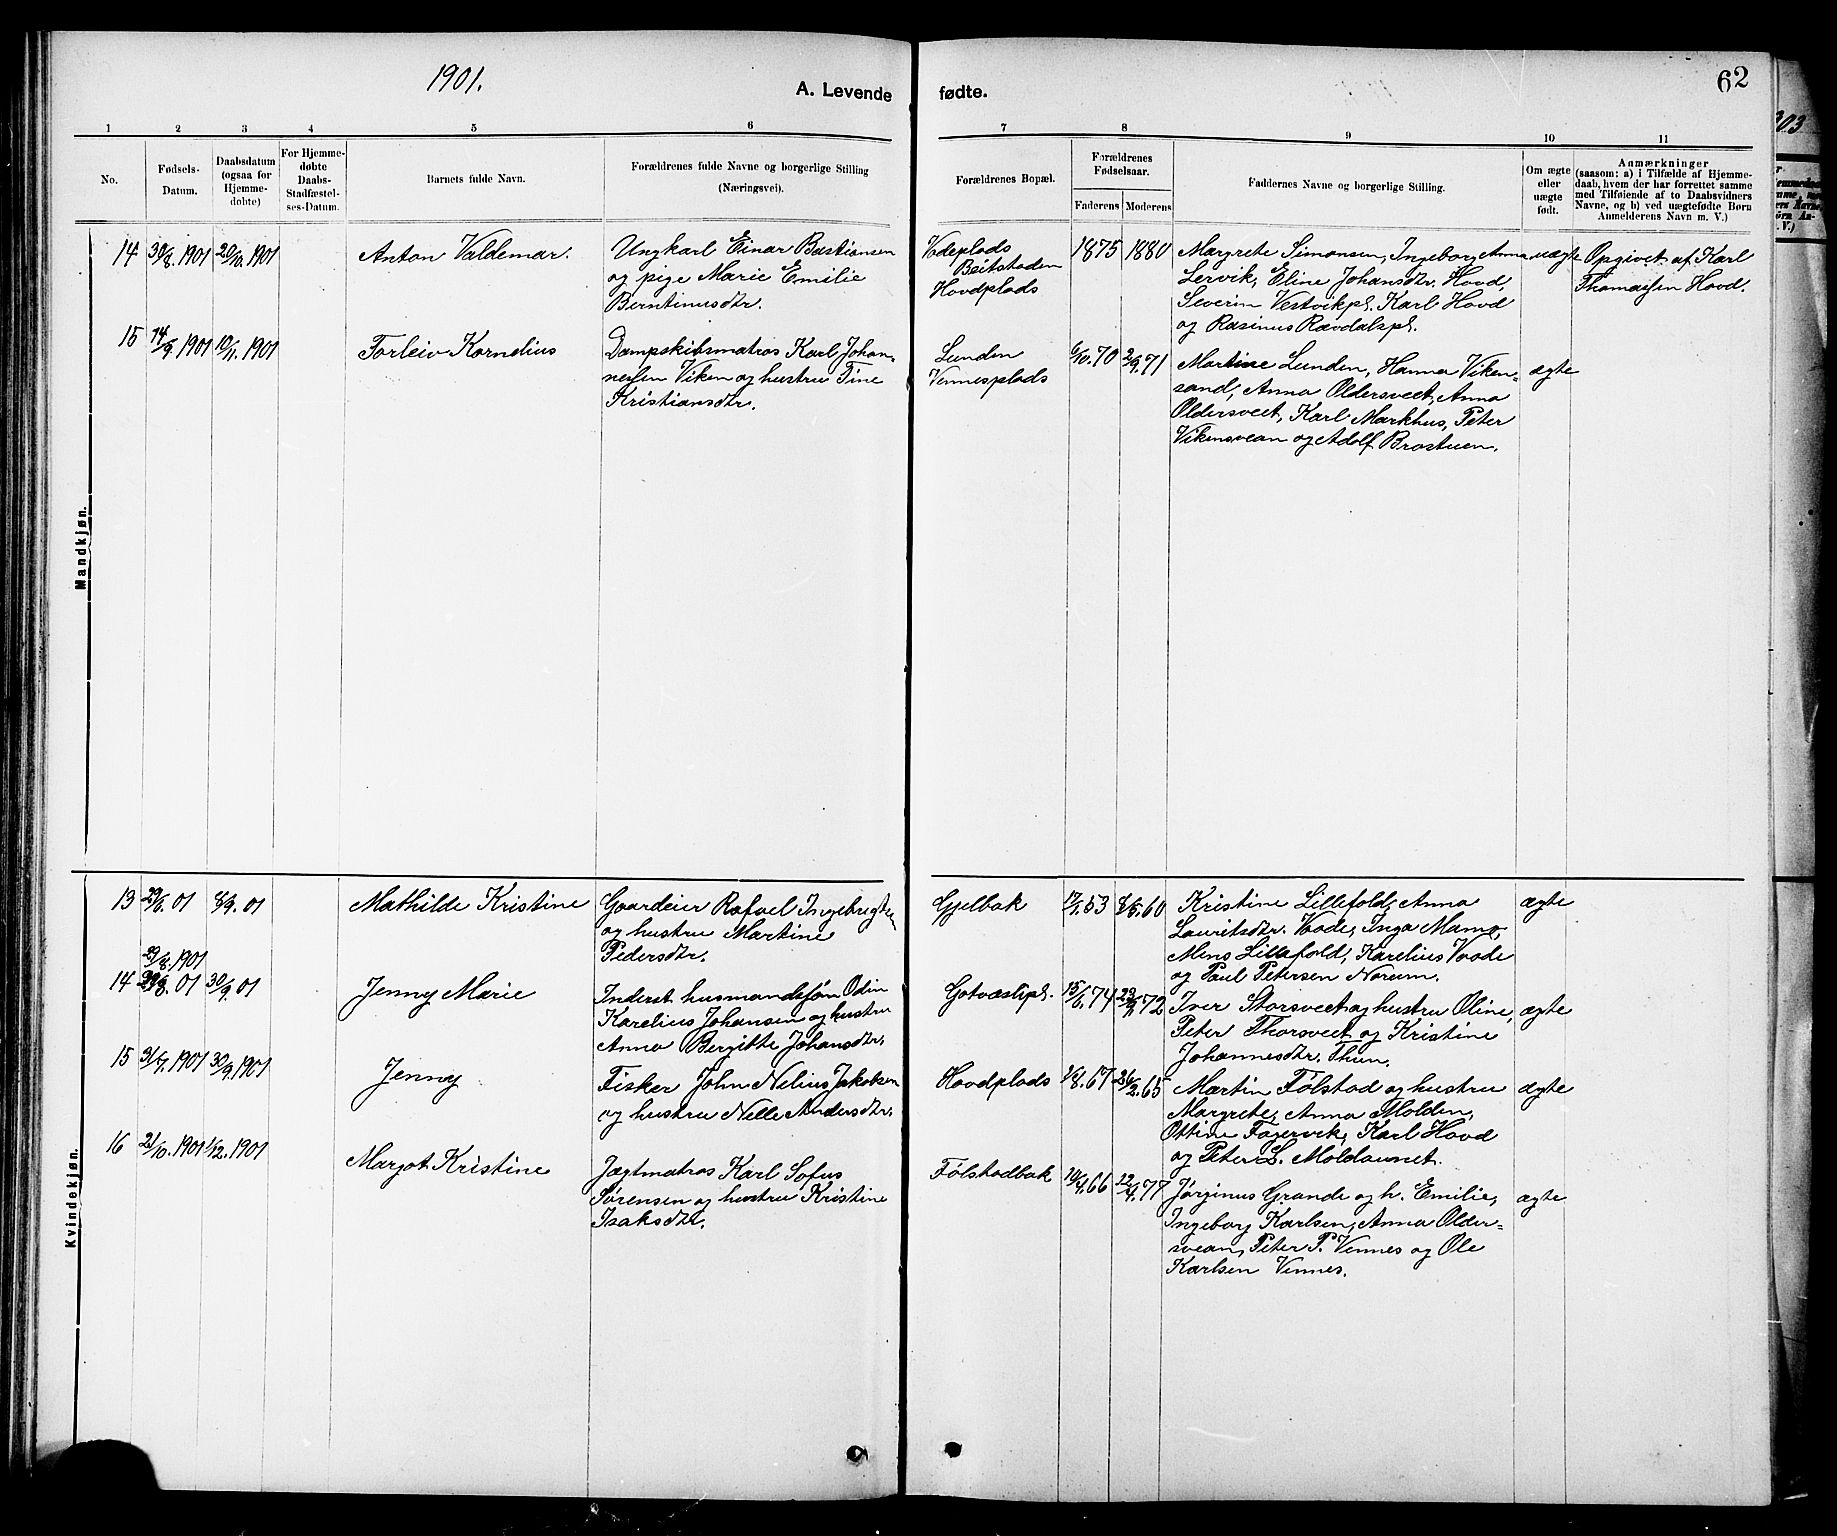 1901.
A. Levende
fødte.
62
1 2 3 4 5 6 7 8 9 10 11
No.
Fødsels-
Datum.
Daabsdatum
(ogsaa for
Hjemme-
døbte)
For Hjemme-
døbte
Daabs-
Stadfæstel-
ses-Datum.
Barnets fulde Navn.
Forældrenes fulde Navne og borgerlige Stilling
(Næringsvei).
Forældrenes Bopæl.
Forældrenes
Fødselsaar.
Faderens Moderens
Faddernes Navne og borgerlige Stilling.
Om ægte
eller
uægte
født.
Anmærkninger
(saasom: a) i Tilfælde af Hjemme-
daab, hvem der har forrettet samme
med Tilføiende af to Daabsvidners
Navne, og b) ved uægtefødte Børn
Anmelderens Navn m. V.)
Mandkjøn.
14 30/8. 1901 20/10. 1901
Anton Valdemar.
Ungkarl Einar Bastiansen
og pige Marie Emilie
Berntinusdtr.
Vodeplads
Beitstaden
Hovdplads
1875 1880
Margrete Simonsen, Ingeborg Anna
Lervik, Eline Johansdtr. Hovd,
Severin Vestvikpl. Karl Hovd
og Rasinus Rævdalspl.
uægte
Opgivet af Karl
Thomassen Hovd.
15 14/9. 1901 10/11. 1901
Torleiv Kornelius
Dampskibsmatros Karl Johan-
nessen Viken og hustru Tine
Kristiansdtr.
Lunden
Vennesplads
6/10. 70 2/9. 71
Martine Lunden, Hanna Viken-
sand, Anna Oldersveet, Anna
Oldersveet, Karl Markhus, Peter
Vikensvean og Adolf Brostuen.
ægte
Kvindekjøn.
13 01 8/9. 01
Mathilde Kristine
Gaardeier Rafael Ingebrigtsen
og hustru Martine
Pedersdtr.
Gjelbak
Kristine Lillefold, Anna
Lauritsdtr. Vode, Inga Mamo,
Mens Lillefold, Karelius Vode
og Paul Petersen Norum.
ægte
29/8. 1901
14 01 30/9. 01
Jenny Marie
Inderst. husmandssøn Odin
Karelius Johansen og hustru
Anna Bergitte Johansdtr.
15/6. 74
Iver Storsveet og hustru Oline,
Peter Thorsveet og Kristine
Johannesdtr. Thun.
ægte
15 31/7. 1901 30/9. 1901
Jenny
Fisker John Nilius Jakobsen
og hustru Nelle Andersdtr.
Hovdplads
Martin Følstad og hustru
Margrete, Anna Molden,
Ottine Fagervik, Karl Hovd
og Peter L. Moldaunet.
ægte
16 21/10. 1901 1/12. 1901
Margot Kristine
Jægtmatros Karl Sofus
Sørensen og hustru Kristine
Isaksdtr.
Følstadbak
12/4. 77
Jørginus Grande og h. Emilie,
Ingeborg Karlsen, Anna Older-
svean, Peter P. Vennes og Ole
Karlsen Vennes.
ægte